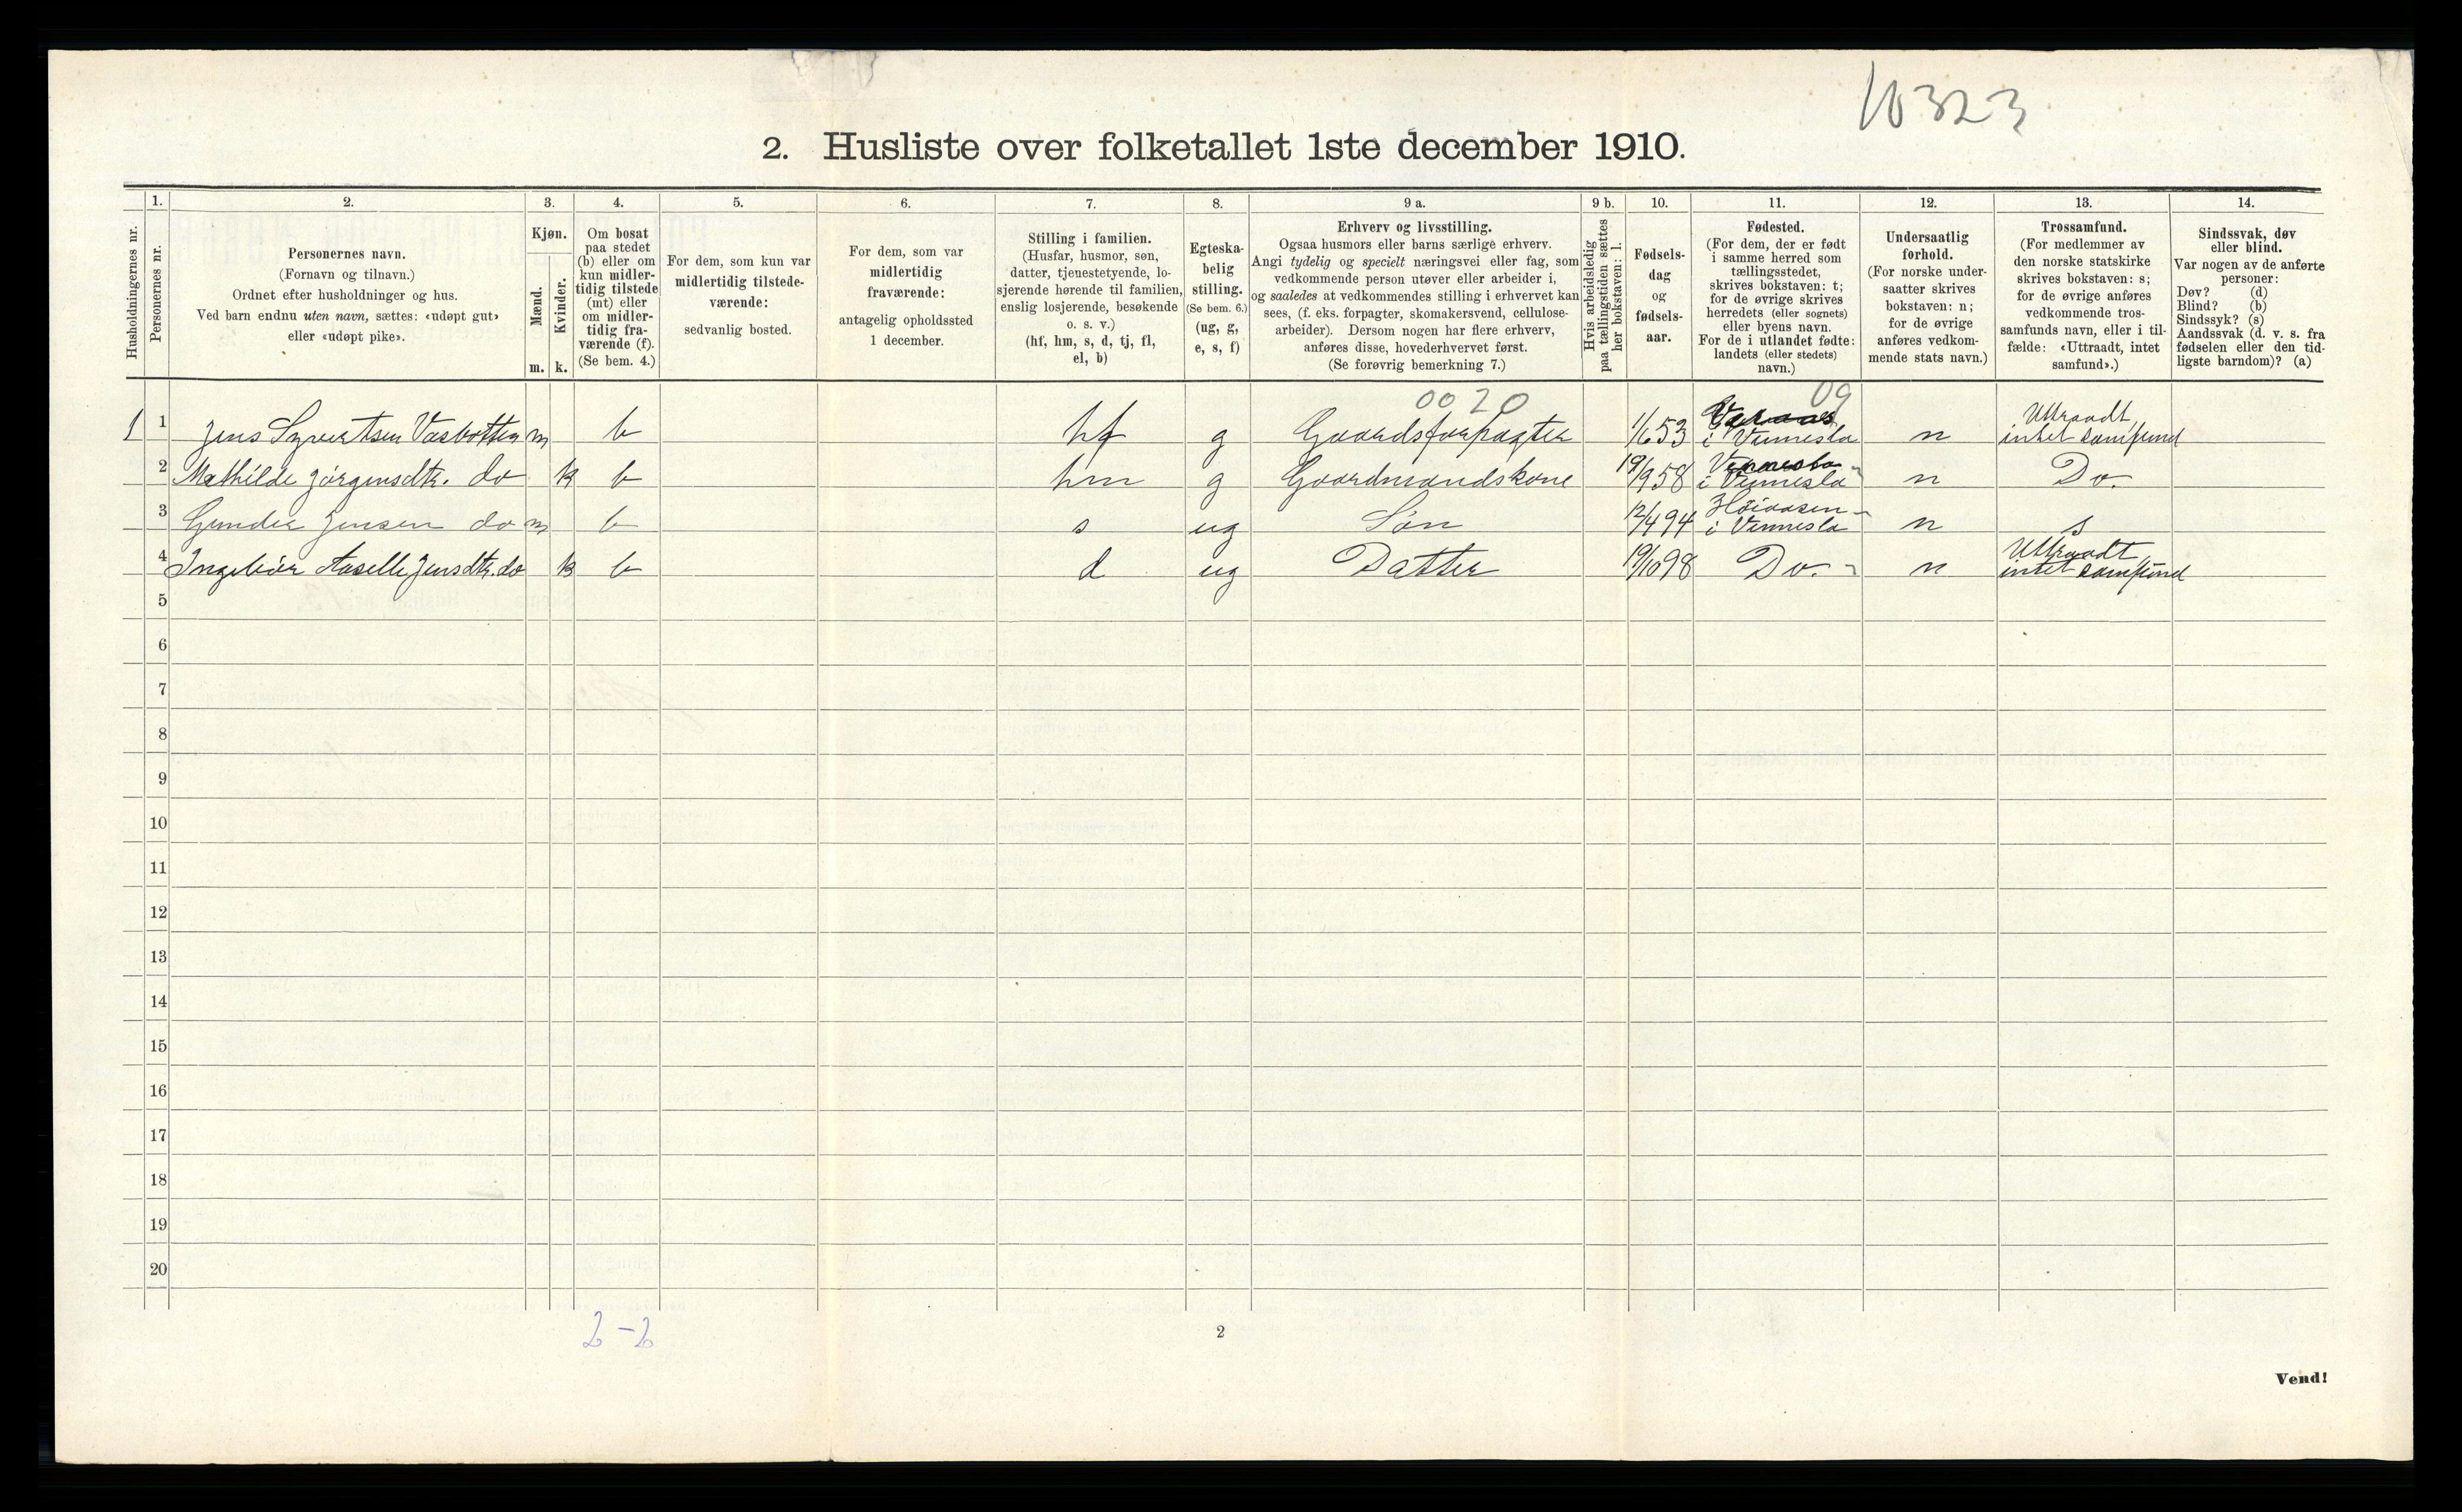 10323
2. Husliste over folketallet 1ste december 1910.
1. 2. 3. 4. 5. 6. 7. 8. 9 a. 9 b. 10. 11. 12. 13. 14.
Husholdningernes nr.
Personernes nr.
Personernes navn.
(Fornavn og tilnavn.)
Ordnet efter husholdninger og hus.
Ved barn endnu uten navn, sættes: «udøpt gut»
eller «udøpt pike».
Kjøn.
Mænd.
Kvinder.
m. k.
Om bosat
paa stedet
(b) eller om
kun midler-
tidig tilstede
(mt) eller
om midler-
tidig fra-
værende (f).
(Se bem. 4.)
For dem, som kun var
midlertidig tilstede-
værende:
sedvanlig bosted.
For dem, som var
midlertidig
fraværende:
antagelig opholdssted
1 december.
Stilling i familien.
(Husfar, husmor, søn,
datter, tjenestetyende, lo-
sjerende hørende til familien,
enslig losjerende, besøkende
o. s. v.)
(hf, hm, s, d, tj, fl,
el, b)
Egteska-
belig
stilling.
(Se bem. 6.)
(ug, g,
e, s, f)
Erhverv og livsstilling.
Ogsaa husmors eller barns særlige erhverv.
Angi tydelig og specielt næringsvei eller fag, som
vedkommende person utøver eller arbeider i,
og saaledes at vedkommendes stilling i erhvervet kan
sees, (f. eks. forpagter, skomakersvend, cellulose-
arbeider). Dersom nogen har flere erhverv,
anføres disse, hovederhvervet først.
(Se forøvrig bemerkning 7.)
Hvis arbeidsledig
paa tællingstiden sættes
her bokstaven: l.
Fødsels-
dag
og
fødsels-
aar.
Fødested.
(For dem, der er født
i samme herred som
tællingsstedet,
skrives bokstaven: t;
for de øvrige skrives
herredets (eller sognets)
eller byens navn.
For de i utlandet fødte:
landets (eller stedets)
navn.)
Undersaatlig
forhold.
(For norske under-
saatter skrives
bokstaven: n;
for de øvrige
anføres vedkom-
mende stats navn.)
Trossamfund.
(For medlemmer av
den norske statskirke
skrives bokstaven: s;
for de øvrige anføres
vedkommende tros-
samfunds navn, eller i til-
fælde: «Uttraadt, intet
samfund».)
Sindssvak, døv
eller blind.
Var nogen av de anførte
personer:
Døv? (d)
Blind? (b)
Sindssyk? (s)
Aandssvak (d. v. s. fra
fødselen eller den tid-
ligste barndom)? (a)
0020 09
1 1 Jens Syvertsen Vasbotten m b hf g Gaardsforpagter 1/6 53 i Vennesla n Uttraadt, intet samfund
2 Mathilde Jørgensdtr. do k b hm g Gaardmandskone 19/9 58 Vennesla i Vennesla n Do.
3 Gunder Jensen do m b s ug Søn 12/4 94 Høiaasen i Vennesla n s
4 Ingebör Aaselle Jensdtr. do k b d ug Datter 19/10 98 Do. n Uttraadt, intet samfund
5
6
7
8
9
10
11
12
13
14
15
16
17
18
19
20
2-2
2
Vend!